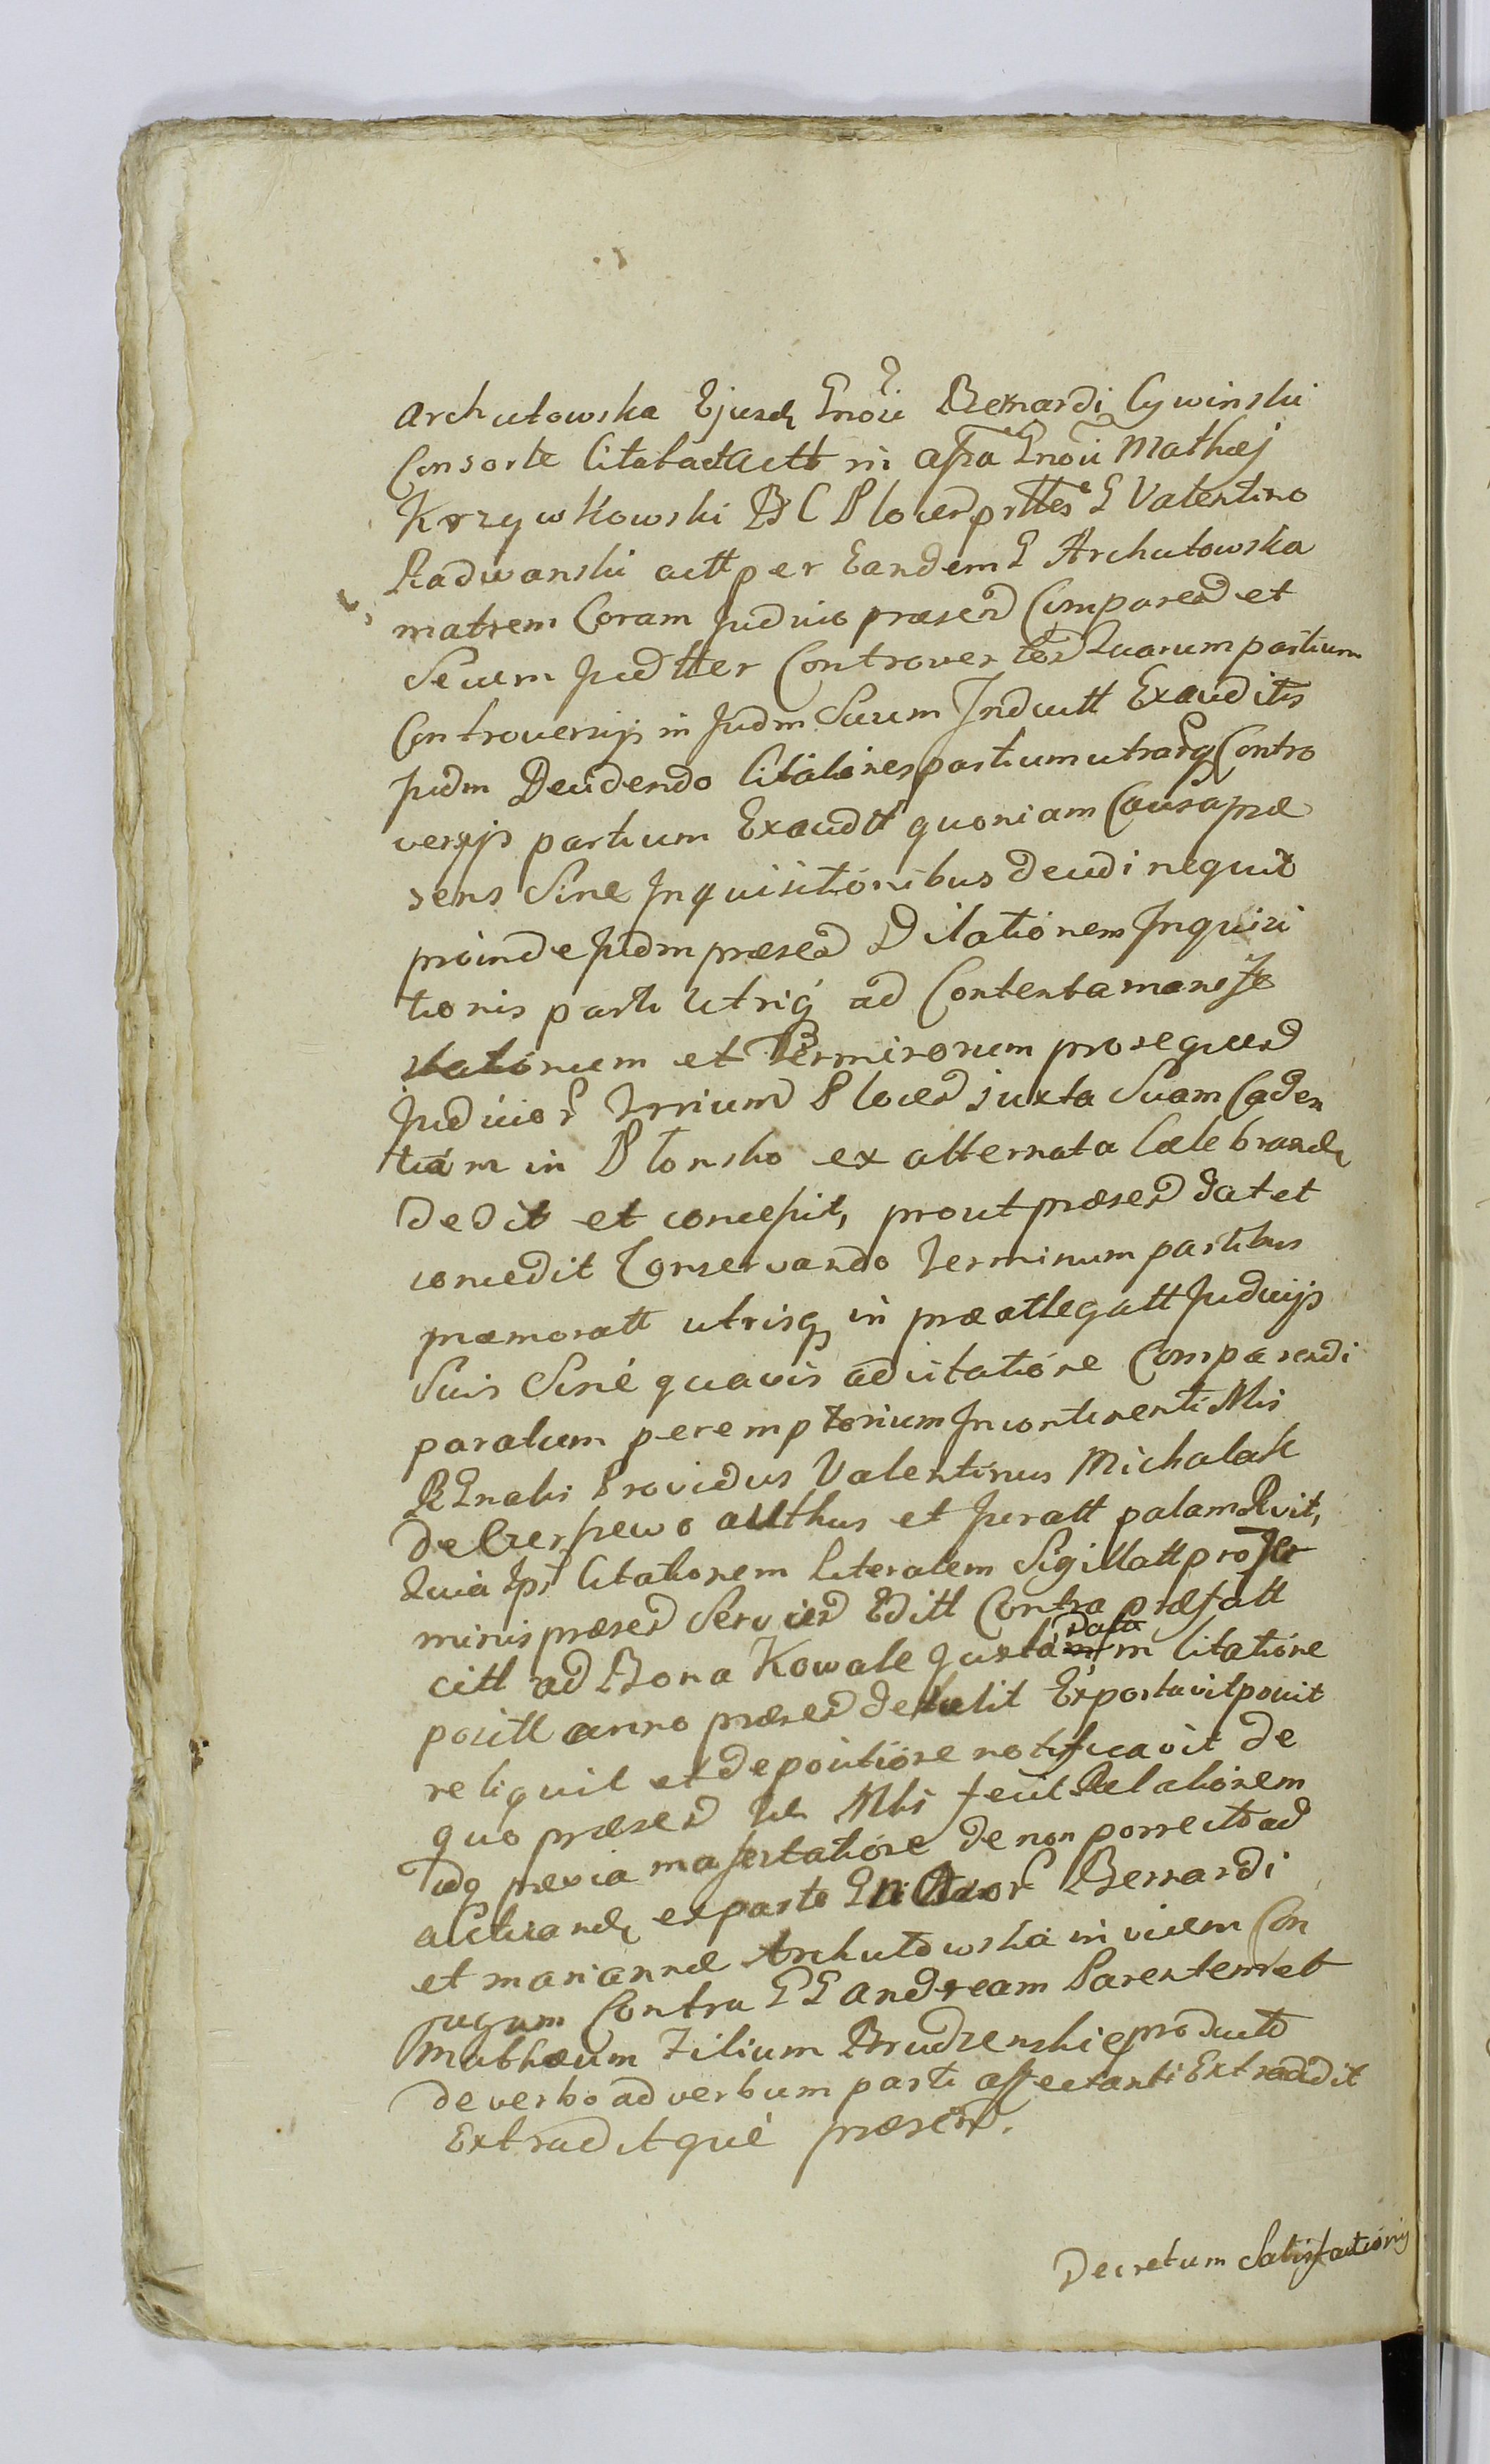 Archutowska Ejusd Gnosi Bernardi Cywinski
Consorte Citabat Actt in assa Gnosi Mathæj
Krzywkowski B C Plocen prttes G Valentino
Radwanski actt per Eandem G Archutowska
matrem Coram Judicio præsen Comparen et
Secum Judtter Controverten Quarum partium
Controversijs in Judm Suum Inductt Exauditis
Judm Decidendo Citationes partium utrarq Contro
versijs partium Exauditt quoniam Causa præ
sens Sine Inquisitionibus decidi nequit
proinde Judm præsen Dilationem Inquisi
tionis parti Utriq ad Contenta manife
stationum et Terminorum prosequen
Judicior Trrium Plocen juxta Suam Caden
tiam in Plonsko ex alternata Cælebrand
dedit et concessit, prout præsen dat et
concedit Conservando Terminum partibus
præmoratt utrisq in præallegatt Judicijs
Suis Sine quavis adcitatione Comparendi
paratum peremptorium Incontinenti Mis
R Gnalis Providus Valentinus Michalak
de Czerpewo autthus et juratt palam Rvit,
Quia Ipse Citationem literalem Sigillatt pro Ter
minis præsen Servien Editt Contra præfatt
citt ad Bona Kowale Juxta data in Citatione
positt anno præsen detulit Exportavit posuit
reliquit et de positione notificavit de
quo præsen Mis fecit Relationem
Idq prævia mafestatione de non porrecto ad
acticand exparte Bernardi
et mariannæ Archutowska invicem Con
jugum Contra G G Andream Parentem et
Mathæum Filium Brudzenskie producto
de verbo ad verbum parti affectanti Extradidit
Extraditque præsen.
Decretum Satisfactionis